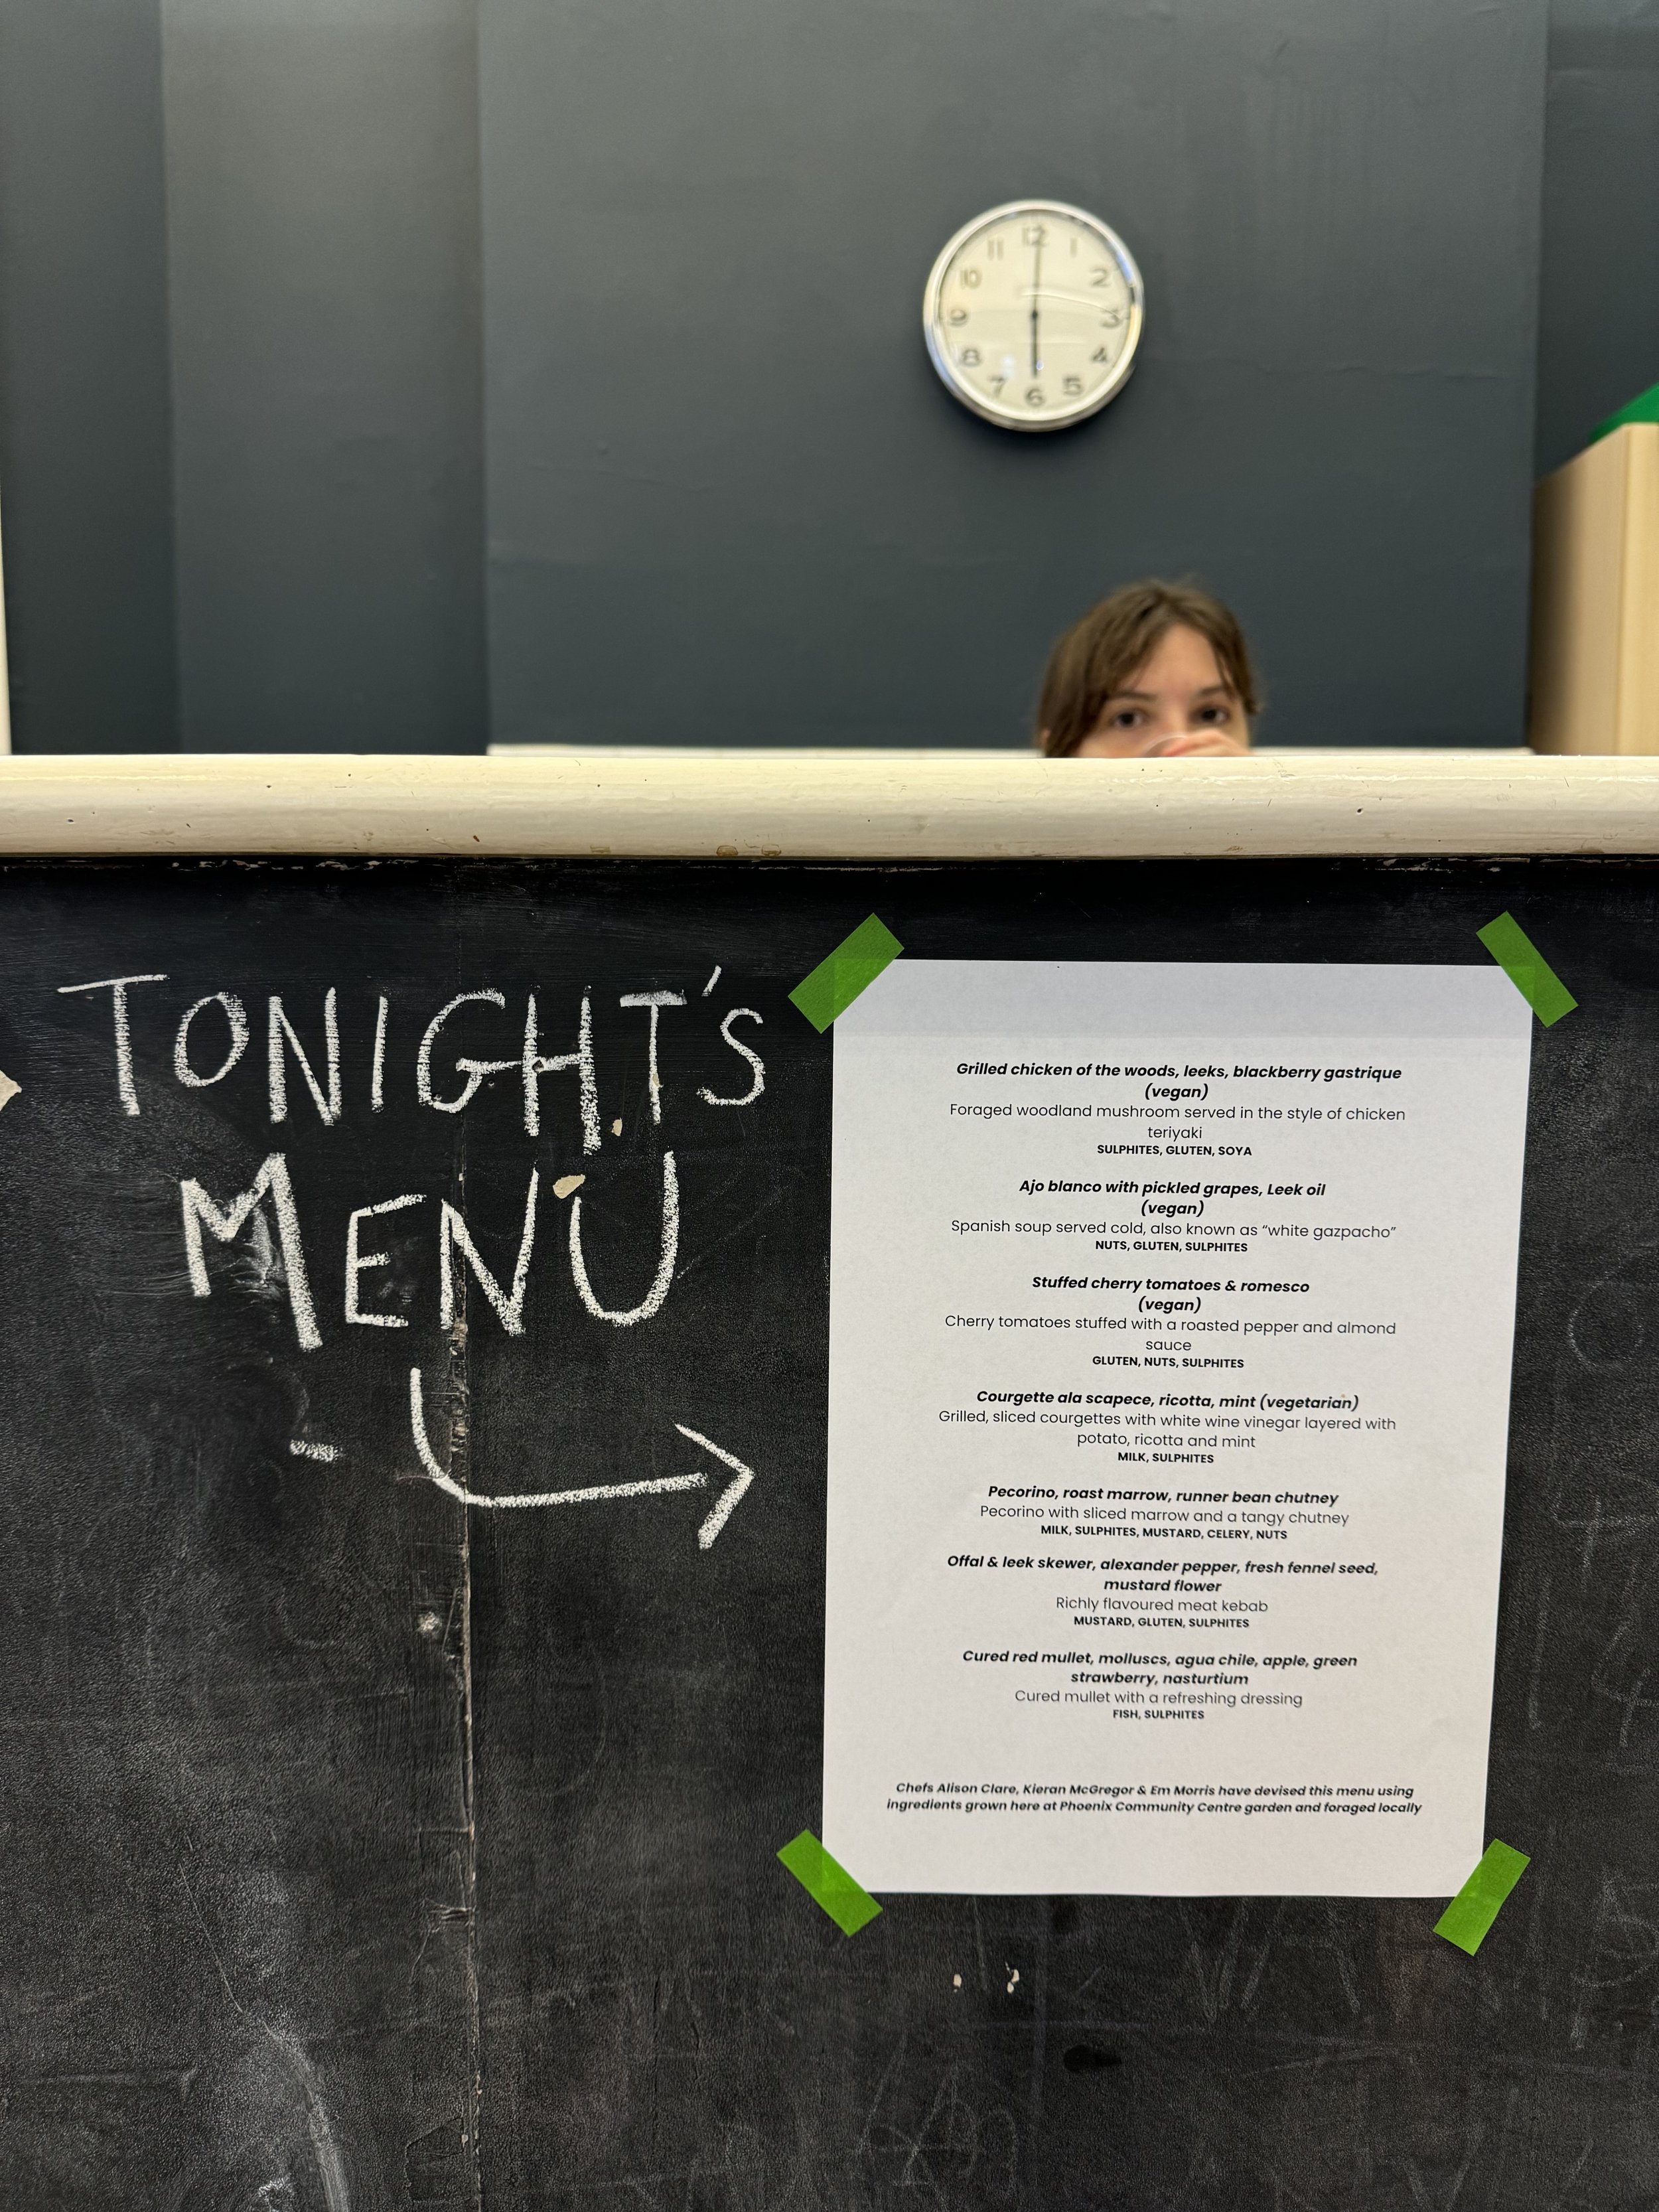 12
1
2
3
4
5
6
7
8
9
10
11
TONIGHT'S
MENU
Grilled chicken of the woods, leeks, blackberry gastrique
(vegan)
Foraged woodland mushroom served in the style of chicken
teriyaki
SULPHITES, GLUTEN, SOYA
Ajo blanco with pickled grapes, Leek oil
(vegan)
Spanish soup served cold, also known as “white gazpacho”
NUTS, GLUTEN, SULPHITES
Stuffed cherry tomatoes & romesco
(vegan)
Cherry tomatoes stuffed with a roasted pepper and almond
sauce
GLUTEN, NUTS, SULPHITES
Courgette ala scapece, ricotta, mint (vegetarian)
Grilled, sliced courgettes with white wine vinegar layered with
potato, ricotta and mint
MILK, SULPHITES
Pecorino, roast marrow, runner bean chutney
Pecorino with sliced marrow and a tangy chutney
MILK, SULPHITES, MUSTARD, CELERY, NUTS
Offal & leek skewer, alexander pepper, fresh fennel seed,
mustard flower
Richly flavoured meat kebab
MUSTARD, GLUTEN, SULPHITES
Cured red mullet, molluscs, agua chile, apple, green
strawberry, nasturtium
Cured mullet with a refreshing dressing
FISH, SULPHITES
Chefs Alison Clare, Kieran McGregor & Em Morris have devised this menu using
ingredients grown here at Phoenix Community Centre garden and foraged locally